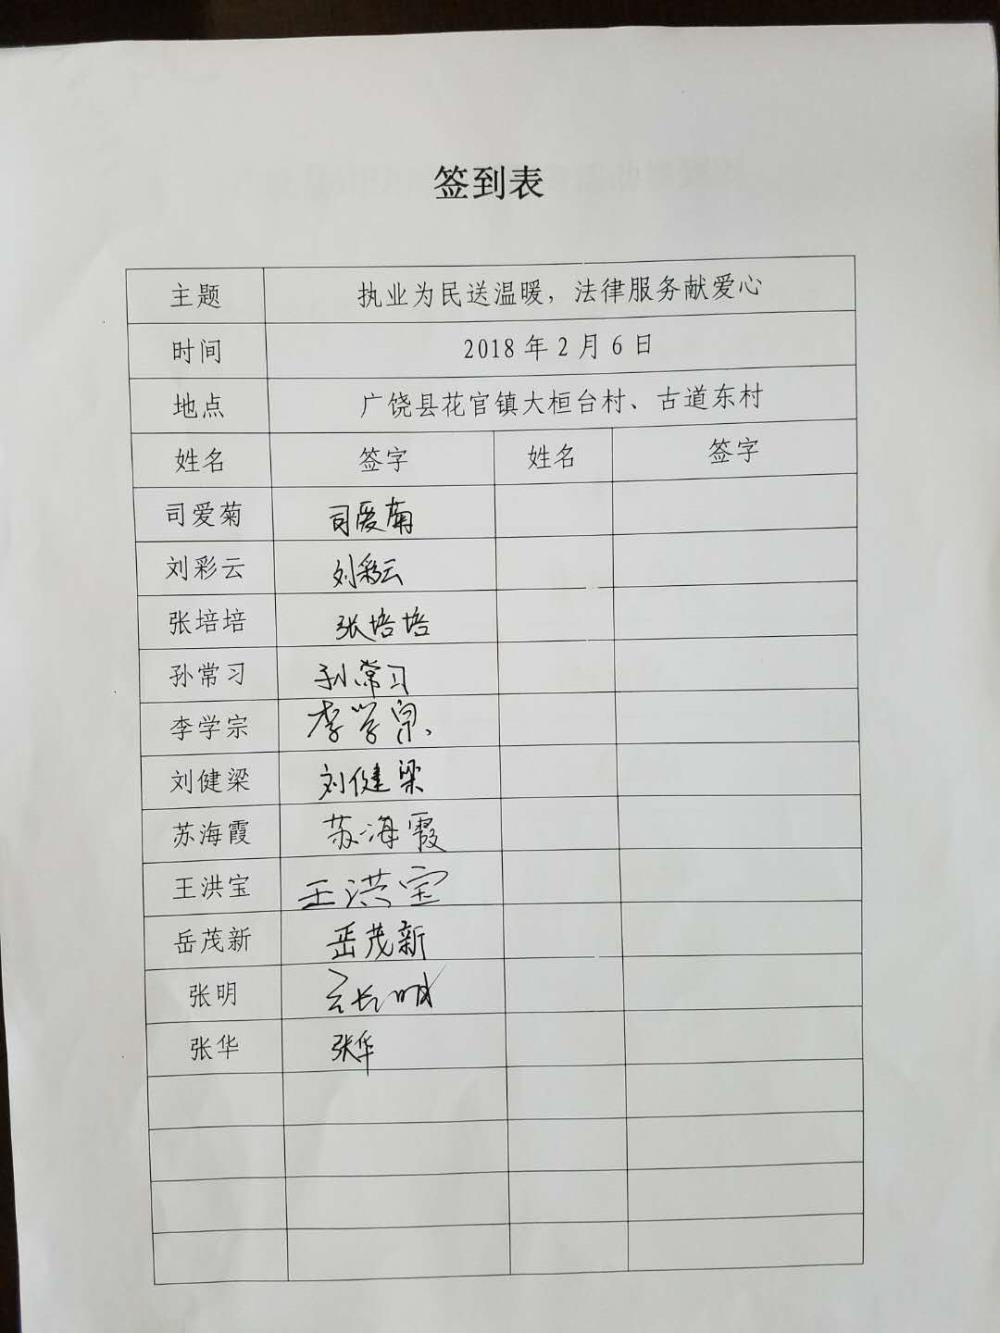 签到表
主题 执业为民送温暖，法律服务献爱心
时间 2018年2月6日
地点 广饶县花官镇大桓台村、古道东村
姓名 签字 姓名 签字
司爱菊 司爱菊
刘彩云 刘彩云
张培培 张培培
孙常习 孙常习
李学宗 李学宗
刘健梁 刘健梁
苏海霞 苏海霞
王洪宝 王洪宝
岳茂新 岳茂新
张明 张明
张华 张华